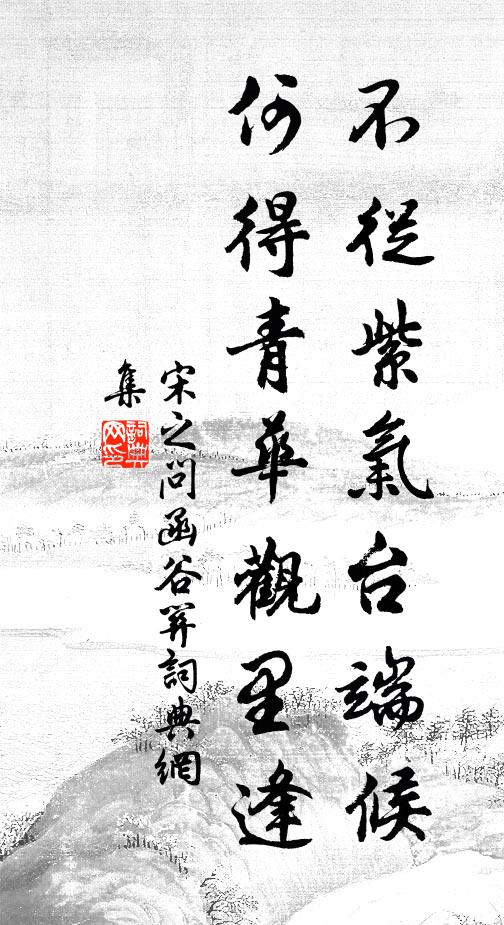 不從紫氣台端候
何得青華觀里逢
宋之問函谷關詞典網
集
詞典
網